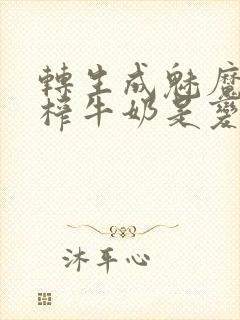 轉生成魅魔
榨牛奶是變
沐平心